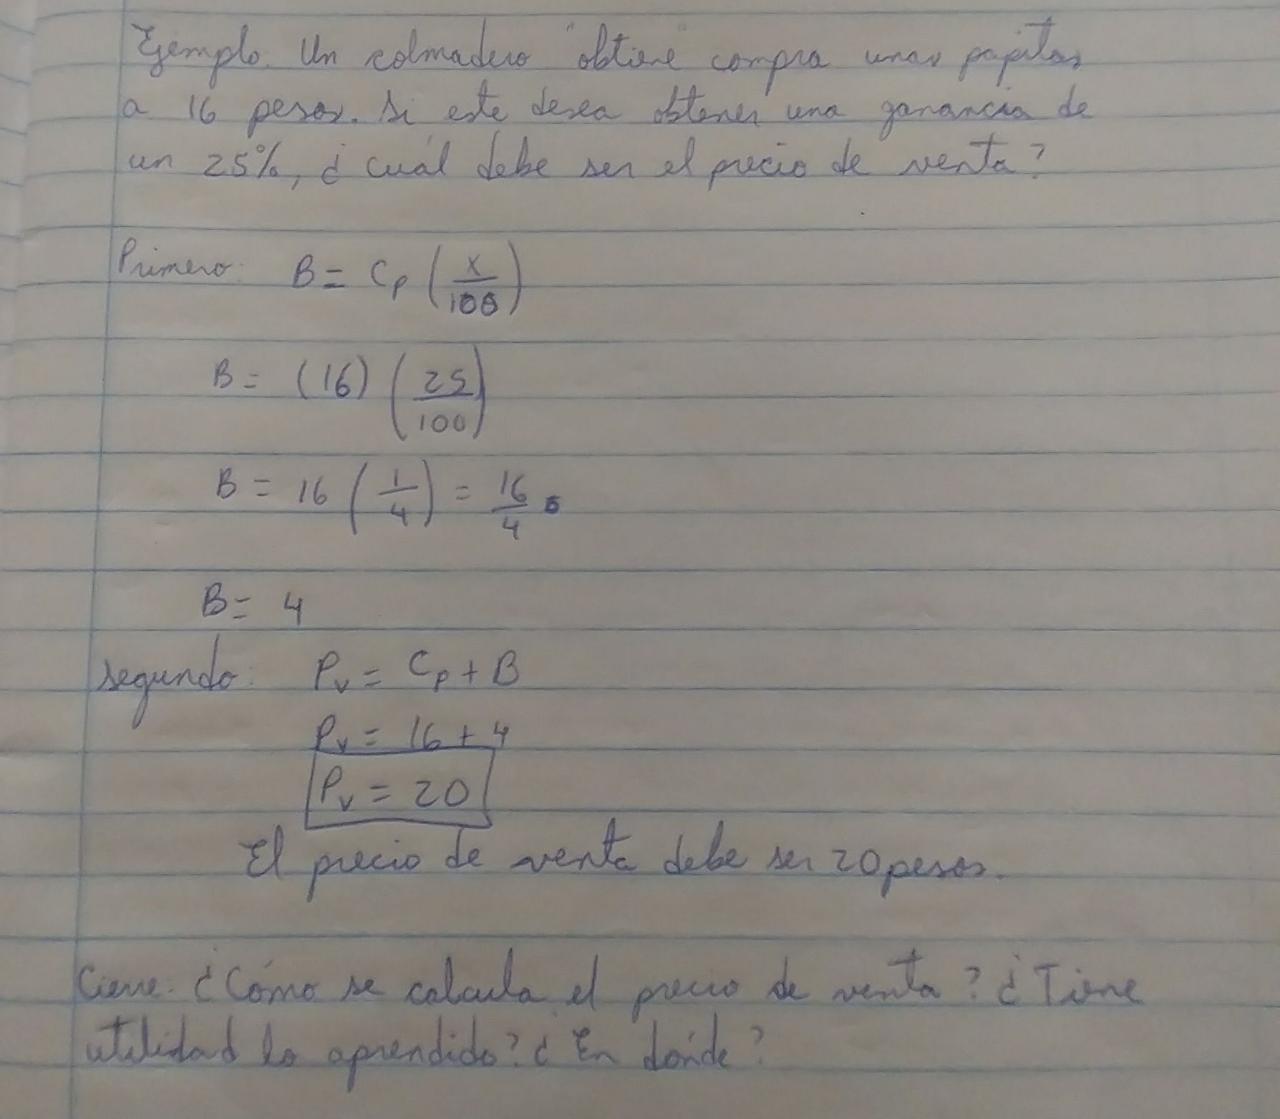 Ejemplo. Un colmadero "obtiene" compra unas papitas
a 16 pesos. Si este desea obtener una ganancia de
un 25%, ¿cuál debe ser el precio de venta?
Primero: B = Cp (x/100)
B = (16) (25/100)
B = 16 (1/4) = 16/4
B = 4
segundo: Pv = Cp + B
Pv = 16 + 4
Pv = 20
El precio de venta debe ser 20 pesos.
Cierre: ¿Cómo se calcula el precio de venta? ¿Tiene
utilidad lo aprendido? ¿En dónde?